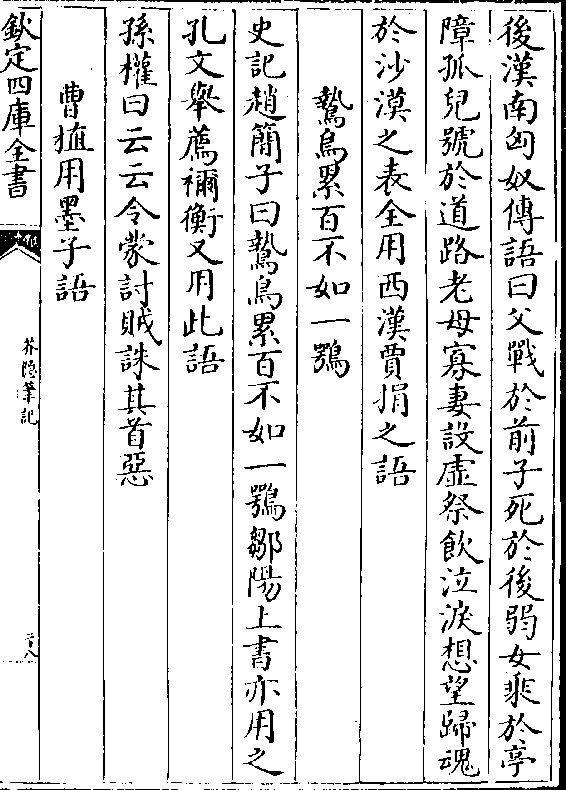 後漢南匈奴傳語曰父戰於前子死於後弱女乘於亭
障孤兒號於道路老母寡妻設虛祭飲泣淚想望歸魂
於沙漠之表全用西漢賈捐之語
鷙鳥累百不如一鶚
史記趙簡子曰鷙鳥累百不如一鶚鄒陽上書亦用之
孔文舉薦禰衡又用此語
孫權曰云云令蒙討賊誅其首惡
曹植用墨子語
欽定四庫全書
芥隱筆記
二十八